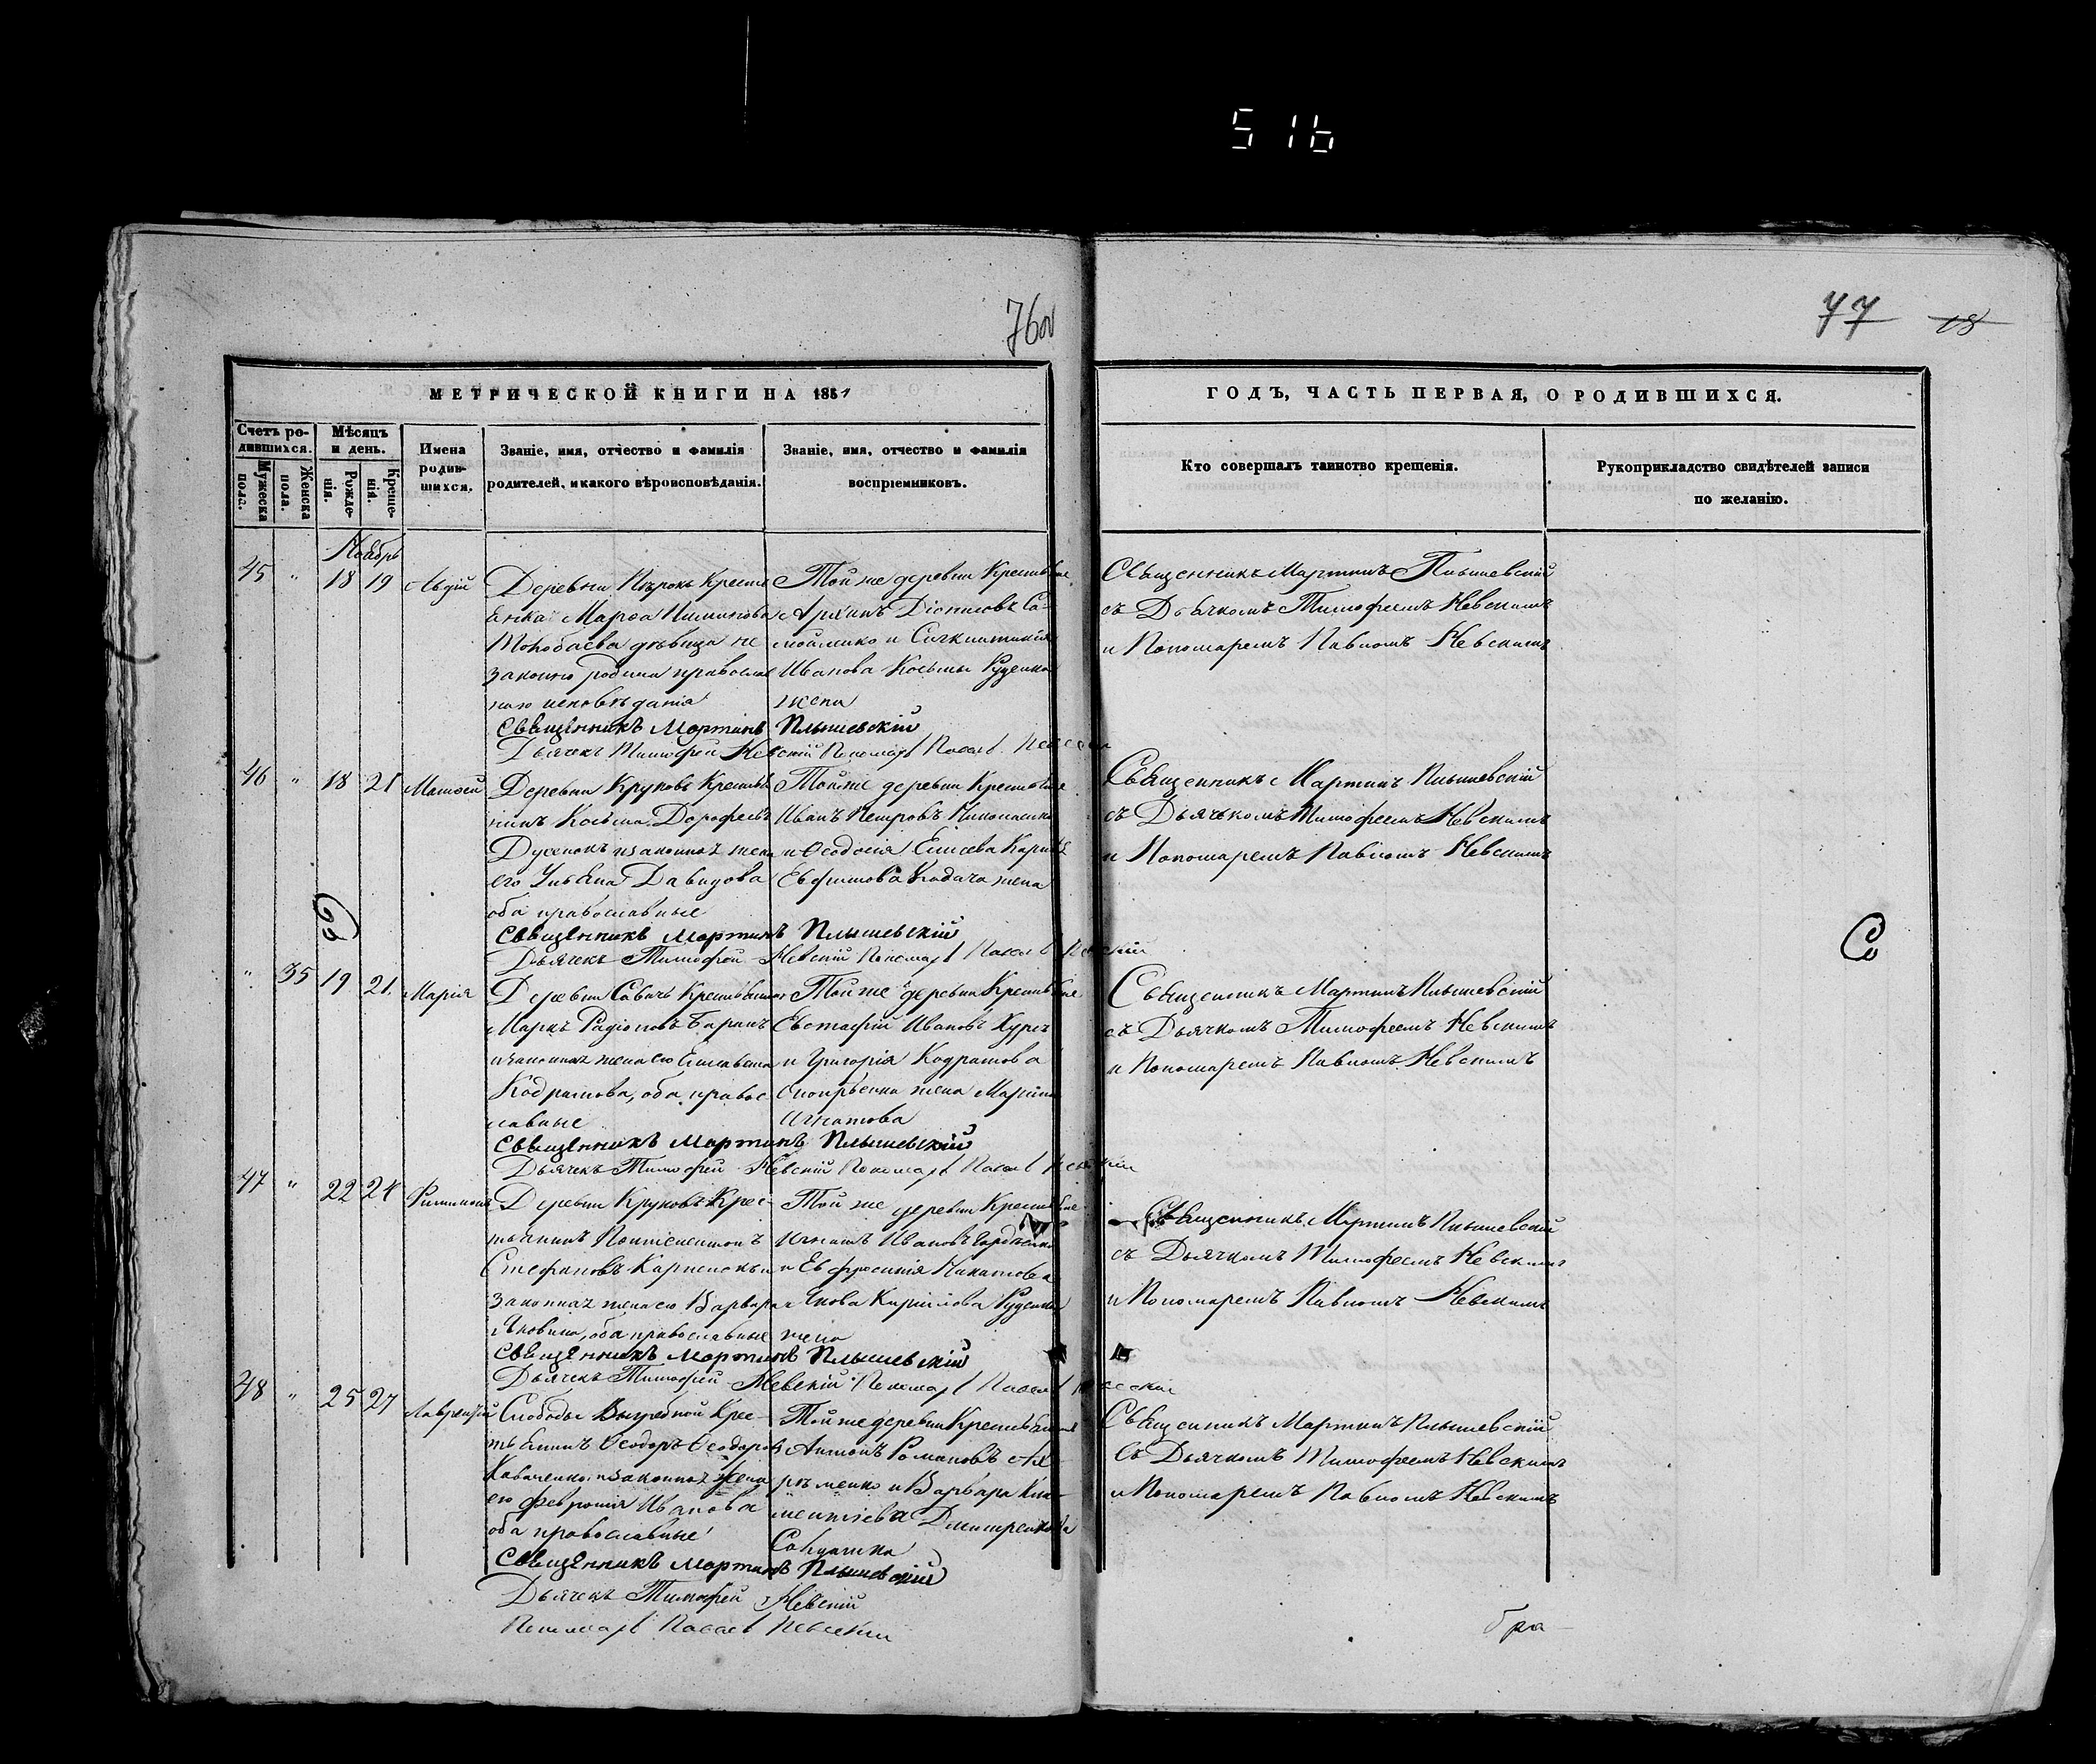 516
76об
77 18
МЕТРИЧЕСКОЙ КНИГИ НА 1851
Счетъ ро-
дившихся.
Мужеска пола.
Женска пола.
Мѣсяцъ
и день.
Рожде-
нія.
Креще-
нія.
Имена
родив-
шихся.
Званіе, имя, отчество и фамилія
родителей, и какого вѣроисповѣданія.
Званіе, имя, отчество и фамилія
воспріемниковъ.
ГОДЪ, ЧАСТЬ ПЕРВАЯ, О РОДИВШИХСЯ.
Кто совершалъ таинство крещенія.
Рукоприкладство свидѣтелей записи
по желанію.
Ноябрь
45 " 18 19 Авдій
Деревни Кресть
янка Марѳа
дѣвица не
законно родила православ
наго исповѣданія
Той же деревни Крестьяне
Діонисовъ Са-
мойленко и
Иванова Косьмы Руденка
жена
Священникъ Мартинъ Пышевскій
съ Дьячкомъ Тимофеемъ Невскимъ
и Пономаремъ Павломъ Невскимъ
Священникъ Мартинъ Плышевскій
Дьячекъ Тимофей Невскій Пономарь Павелъ Невскій
46 " 18 21 Матѳей
Деревни Круковъ Крестья
нинъ Косьма Дорофеевъ
и законная жена
его Ульяна Давидова
оба православные
Той же деревни Крестьяне
Иванъ Петровъ
и Ѳеодосія Елисева
Евфимова жена
Священникъ Мартинъ Плышевскій
съ Дьячькомъ Тимофеемъ Невскимъ
и Пономаремъ Павломъ Невскимъ
Священникъ Мартинъ Плышевскій
Дьячекъ Тимофей Невскій Пономарь Павелъ Невскій
" 35 19 21 Марія
Деревни Савичъ Крестьянинъ
Маркъ Радіоновъ Баранъ
и законная жена его Елисавета
Кодратова, оба правос
лавные
Той же деревни Крестьяне
Евстафій Ивановъ
и Григорія Кодратова
жена Марина
Игнатова
Священникъ Мартинъ Плышевскій
съ Дьячкомъ Тимофеемъ Невскимъ
и Пономаремъ Павломъ Невскимъ
Священникъ Мартинъ Плышевскій
Дьячекъ Тимофей Невскій Пономарь Павелъ Невскій
47 " 22 24 Филимонъ
Деревни Круковъ Крес-
тьянинъ
Стефановъ и
законная жена его Варвара
Яковлева, оба православные
Той же деревни Крестьяне
Игнатъ Ивановъ
и Евфросинія
Якова Кирилова Руденка
жена
Священникъ Мартинъ Плышевскій
съ Дьячкомъ Тимофеемъ Невскимъ
и Пономаремъ Павломъ Невскимъ
Священникъ Мартинъ Плышевскій
Дьячекъ Тимофей Невскій Пономарь Павелъ Невскій
48 " 25 27 Лаврентій
Слободы Крес-
тьянинъ Ѳеодоръ Ѳеодоровъ
и законная жена
его Февронія Иванова
оба православные
Той же деревни Крестьяне
Антонъ Романовъ
и Варвара Кли-
ментіева
Священникъ Мартинъ Плышевскій
съ Дьячкомъ Тимофеемъ Невскимъ
и Пономаремъ Павломъ Невскимъ
Священникъ Мартинъ Плышевскій
Дьячекъ Тимофей Невскій
Пономарь Павелъ Невскій
бра